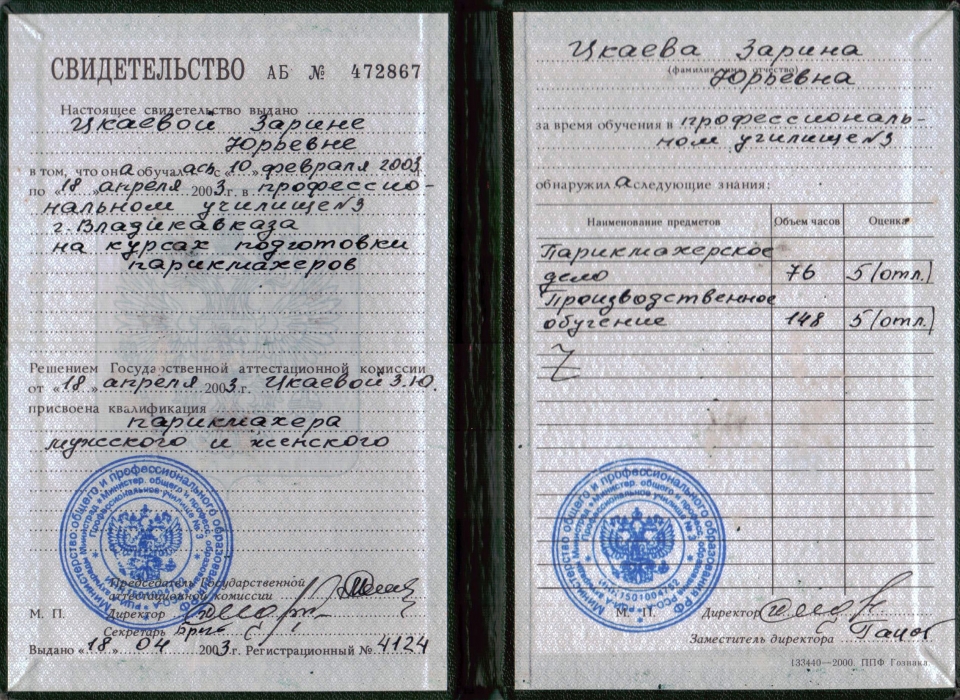 СВИДЕТЕЛЬСТВО АБ № 472867
Настоящее свидетельство выдано
Цкаевой Зарине
Юрьевне
в том, что она обучалась с «10» февраля 2003
по «18» апреля 2003 г. в профессио-
нальном училище №3
г. Владикавказа
на курсах подготовки
парикмахеров
Решением Государственной аттестационной комиссии
от «18» апреля 2003 г. Цкаевой З.Ю.
присвоена квалификация
парикмахера
мужского и женского
Председатель Государственной
аттестационной комиссии
М. П. Директор
Секретарь
Выдано «18» 04 2003 г. Регистрационный № 4124
Цкаева Зарина
(фамилия, отчество)
Юрьевна
за время обучения в профессиональ-
ном училище №3
обнаружила следующие знания:
Наименование предметов Объем часов Оценка
Парикмахерское
дело 76 5 (отл.)
Производственное
обучение 148 5 (отл.)
М. П. Директор
Заместитель директора
133440—2000. ППФ Гознака.